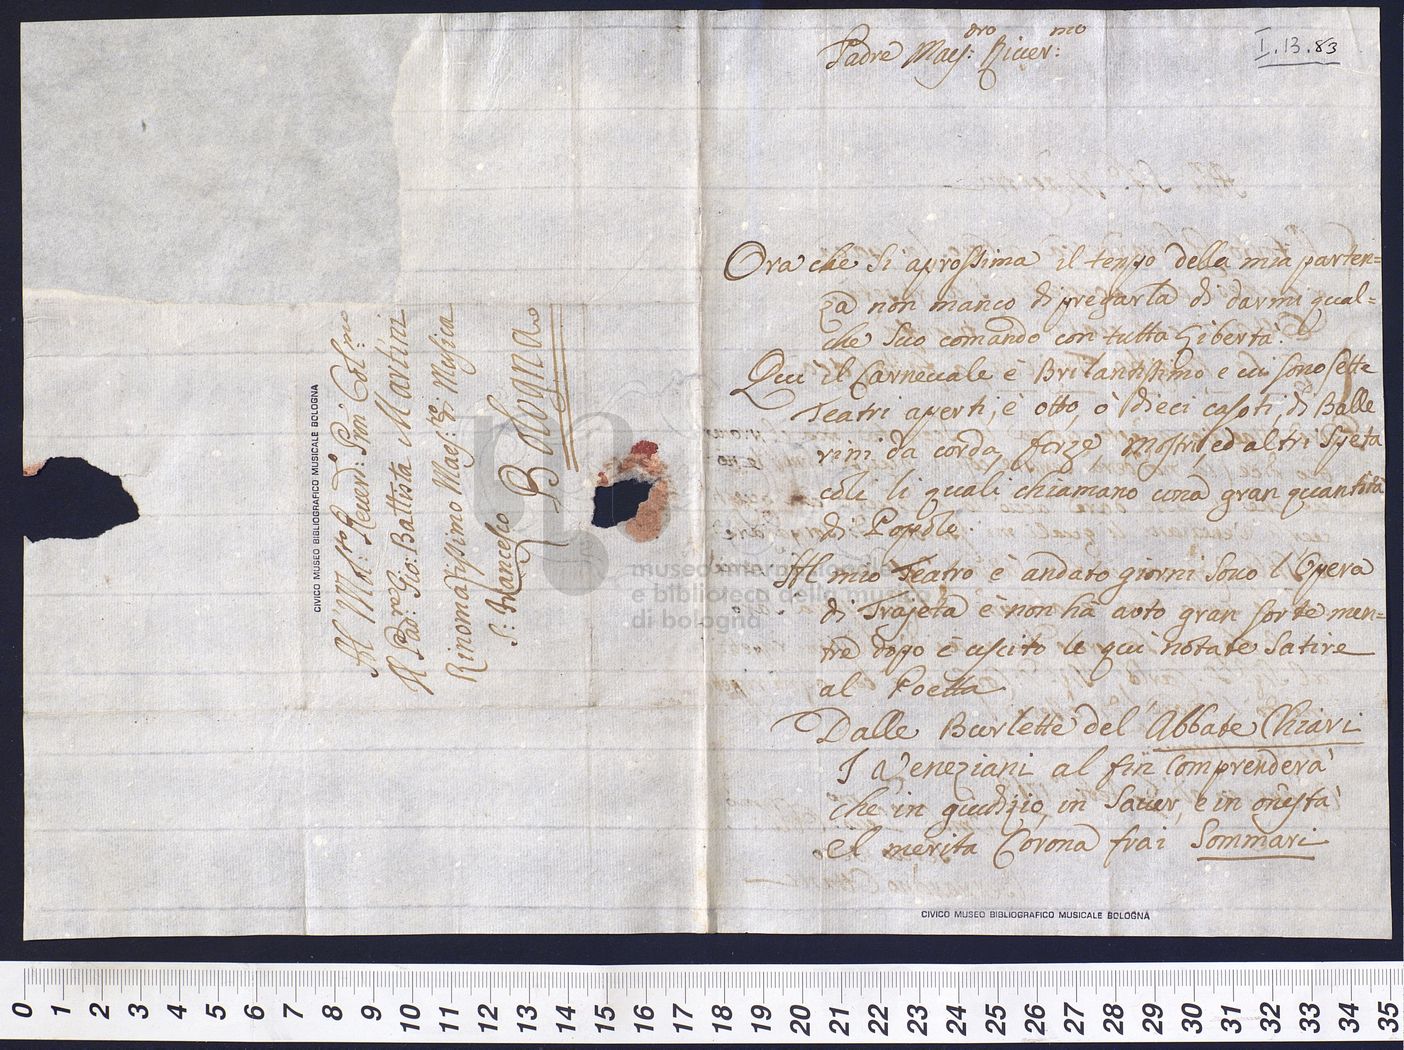 Padre Maes:dro River:mo
I.13.83
Ora che si aprossima il tempo della mia parten=
za non manco di pregarla di darmi qual=
che suo comando con tutta libertà.
Qui il Carnevale è Brilantissimo e vi sono sette
Teatri aperti, e otto, o dieci casoti, di Balle
rini da corda, forze mostri, ed altri Speta
coli li quali chiamano una gran quantità
di Popolo.
Al mio Teatro è andato giorni sono l'Opera
di Trajeta e non ha auto gran sorte men=
tre dopo è uscito le qui notate Satire
al Poetta
Dalle Burlette del Abbate Chiari
I Veneziani al fin comprenderà
che in giudizio, in Saver, e in onestà
el merita Corona frai Sommari
CIVICO MUSEO BIBLIOGRAFICO MUSICALE BOLOGNA
Al Mol:to Rever:do Pron Col:mo
Il Padre Gio: Battista Martini
Rinomatissimo Maes:tro di Musica
S: Francesco
Bologna
CIVICO MUSEO BIBLIOGRAFICO MUSICALE BOLOGNA
museo internazionale
e biblioteca della musica
di bologna
0 1 2 3 4 5 6 7 8 9 10 11 12 13 14 15 16 17 18 19 20 21 22 23 24 25 26 27 28 29 30 31 32 33 34 35